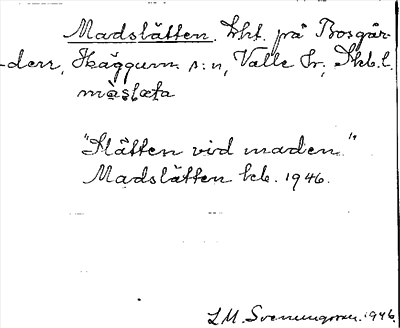 Madslätten. Lht. på Bosgår-
den, Häggum s:n, Valle hr, Skb.l.
màslæta
"Slätten vid maden."
Madslätten beb. 1946.
L.M. Svenungsson. 1946.